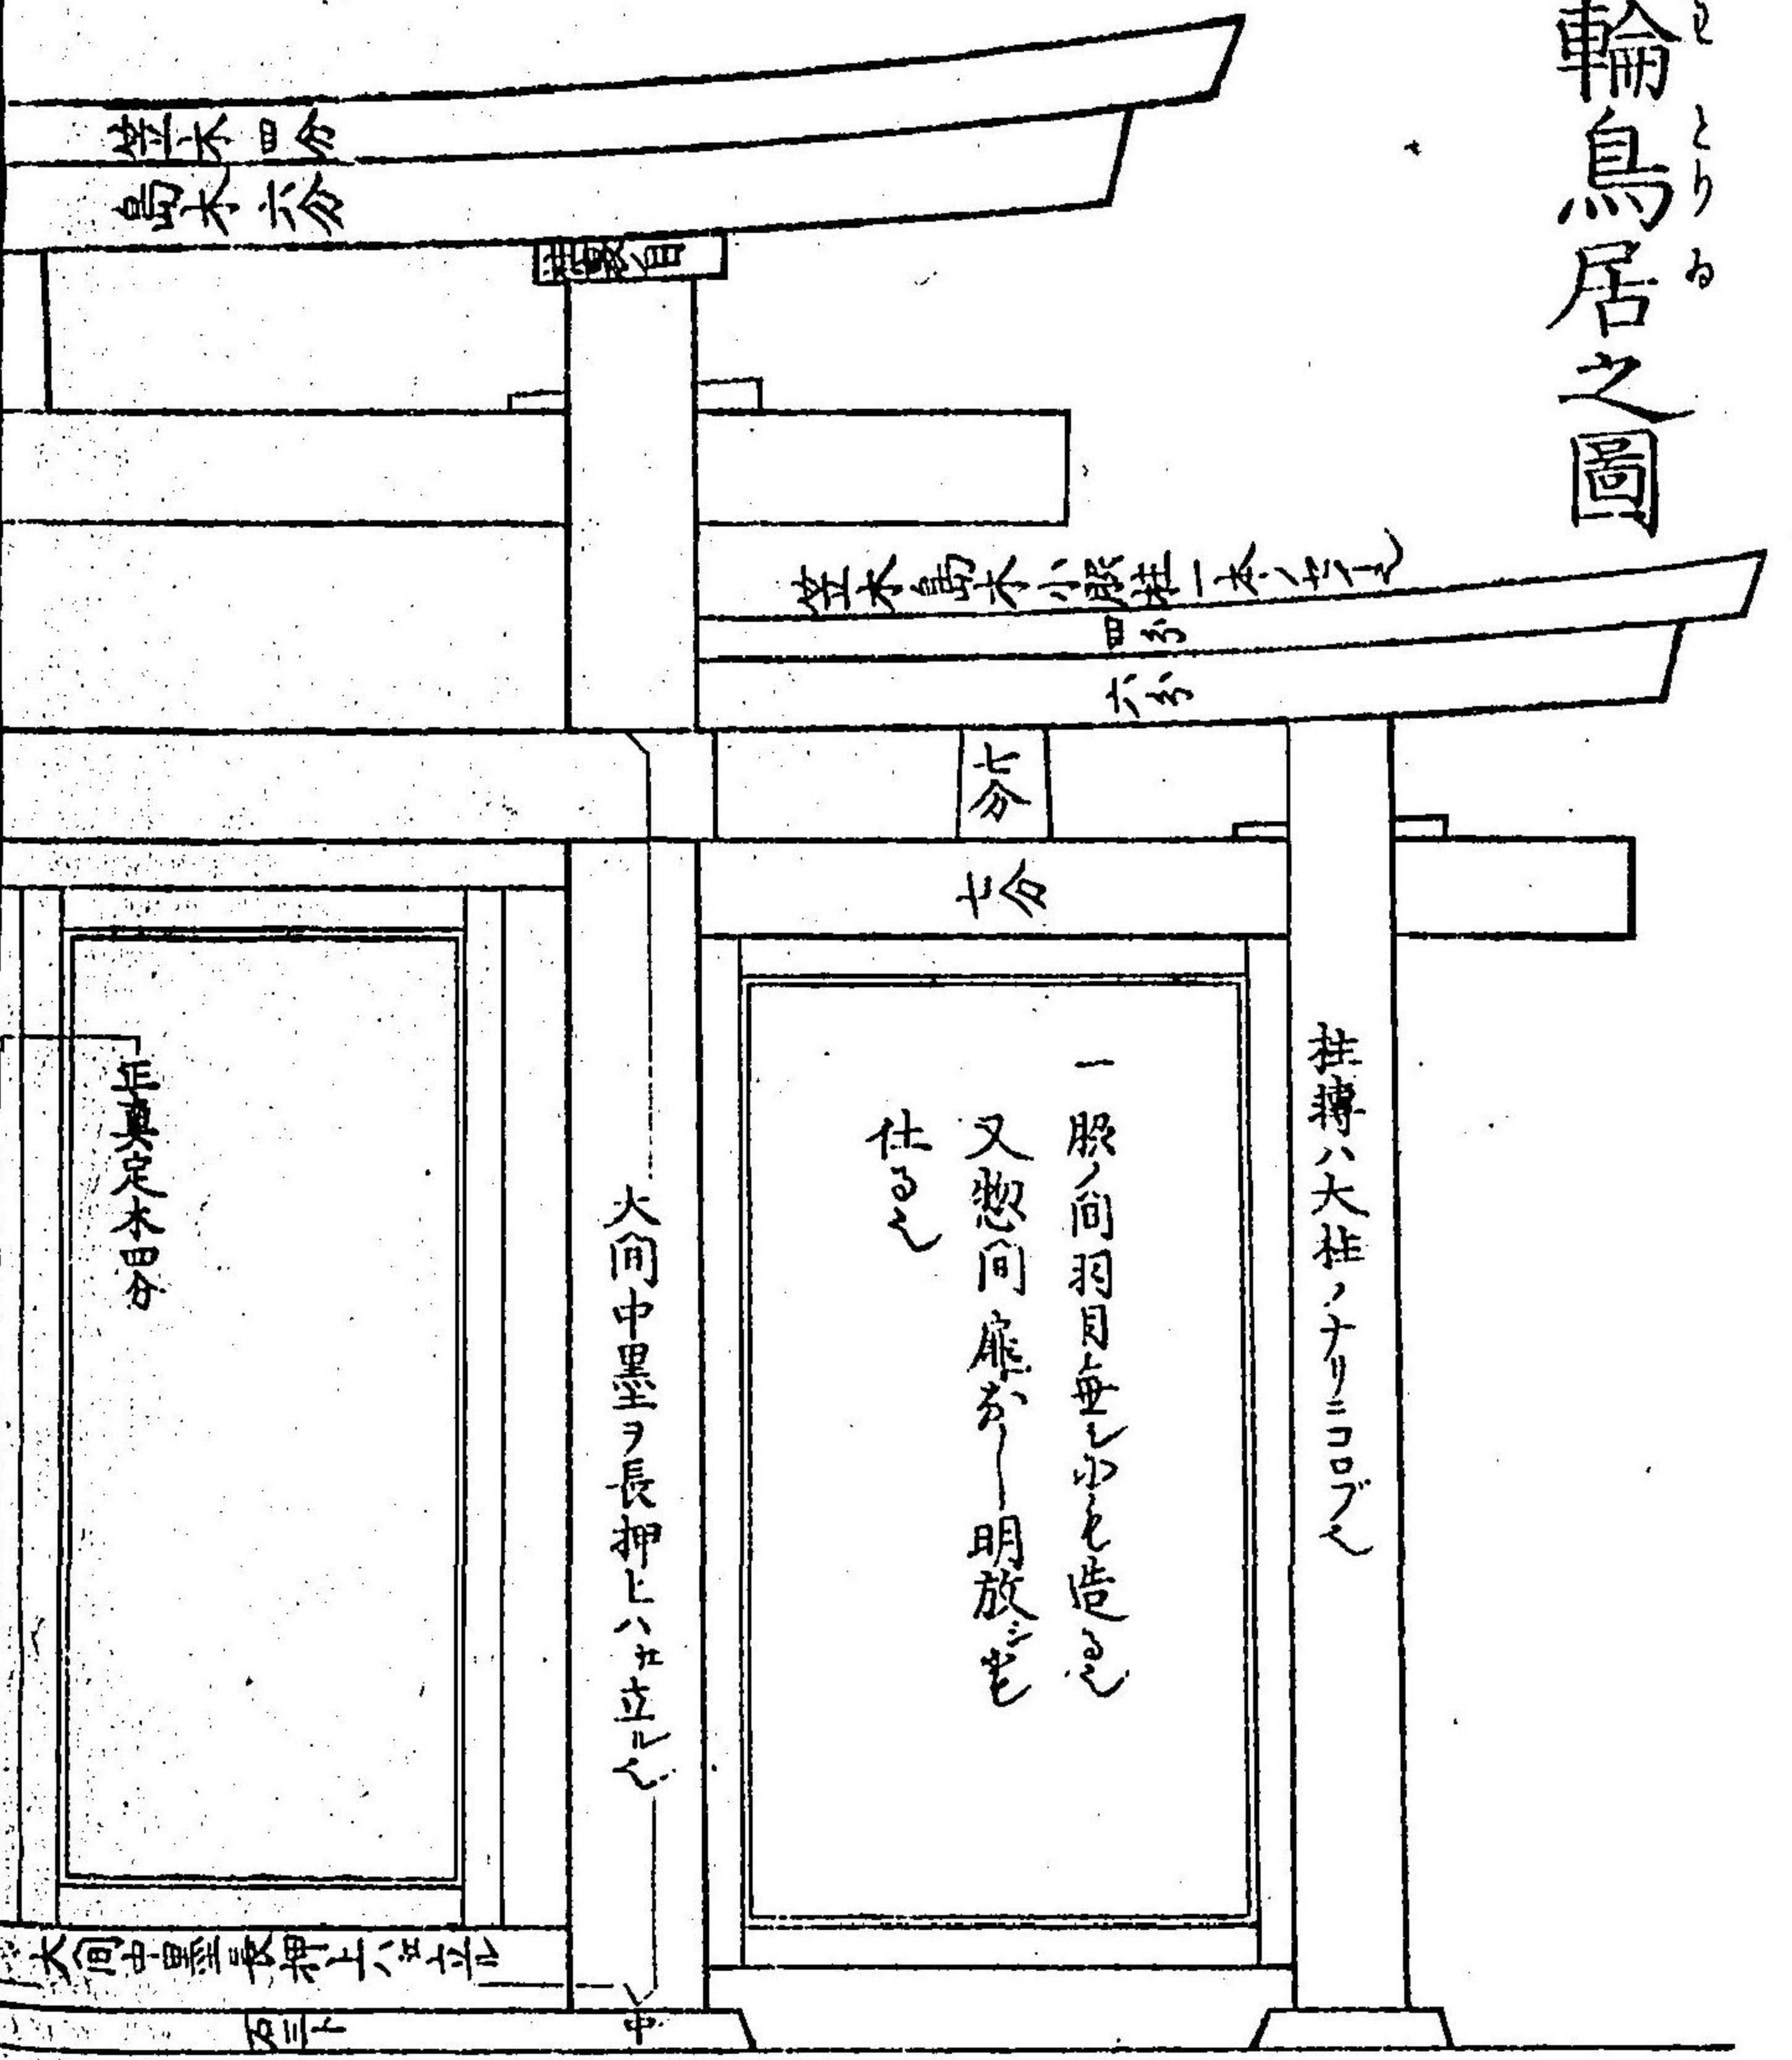 輪鳥居之圖
わとりゐ
笠木四分
島木六分
笠木島木小脇柱一本ノせい
四分
六分
七分
七分
柱轉ハ大柱ノナリニコロブ也
一脇ノ間羽目無し小も造る也
又惣間扉なし明放シも
仕る也
大間中墨ヲ長押上ハ江立ル也
正真定木四分
大間中墨長押上ハ江立ル
中